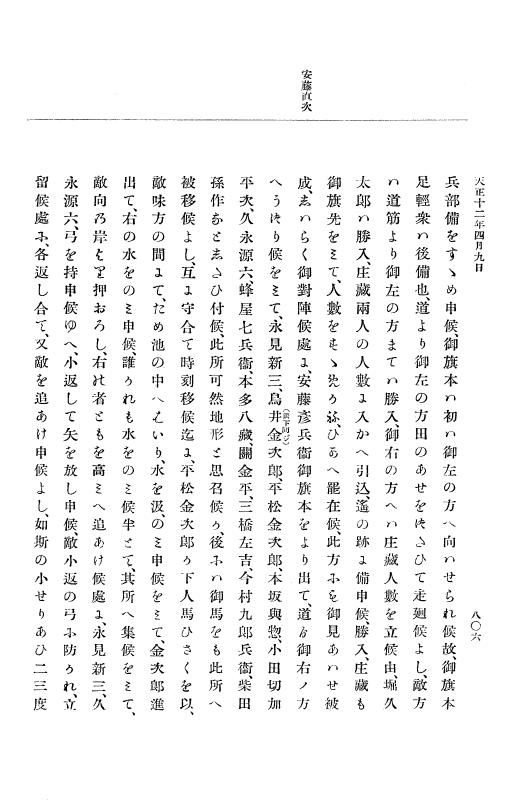 天正十二年四月九日
八〇六
安藤直次
兵部備をすゝめ申候、御旗本ハ初ハ御左の方へ向ハせられ候故、御旗本
足輕衆ハ後備也、道より御左の方田のあせをはさひて走廻候よし、敵方
ハ道筋より御左の方まてハ勝入、御右の方へハ庄藏人數を立候由、堀久
太郎ハ勝入、庄藏兩人の人數ゟ入かへ引込、遙の跡ゟ備申候、勝入、庄藏も
御旗先をミて、人數を
罷在候、此方ふも御見あハせ被
成、しハらく御對陣候處ゟ、安藤彦兵衞御旗本をより出て、道ゟ御右ノ方
候をミて、永見新三、鳥井金次郎、平松金次郎、本坂與惣、小田切加
(以下同ジ)
平次、久永源六、蜂屋七兵衞、本多八藏、關金平、三橋左吉、今村九郎兵衞、柴田
孫作なとしさひ付候、此所可然地形と思召候ゟ、後ふハ御馬をも此所へ
被移候よし、互ゟ守合て時刻移候迄ゟ、平松金次郎ゟ下人馬ひさくを以、
敵味方の間ゟて、ため池の中へはいり、水を汲、のミ申候をミて、金次郎進
出て、右の水をのミ申候、誰うれも水をのミ候半とて、其所へ集候をミて、
敵向乃岸をゟ押おろし、右此者ともを高ミへ追あけ候處ゟ、永見新三、久
永源六、弓を持申候ゆへ、小返して矢を放し申候、敵小返の弓ふ防うれ、立
留候處ふ、各返し合て、又敵を追あけ申候よし、如斯の小せりあひ二三度